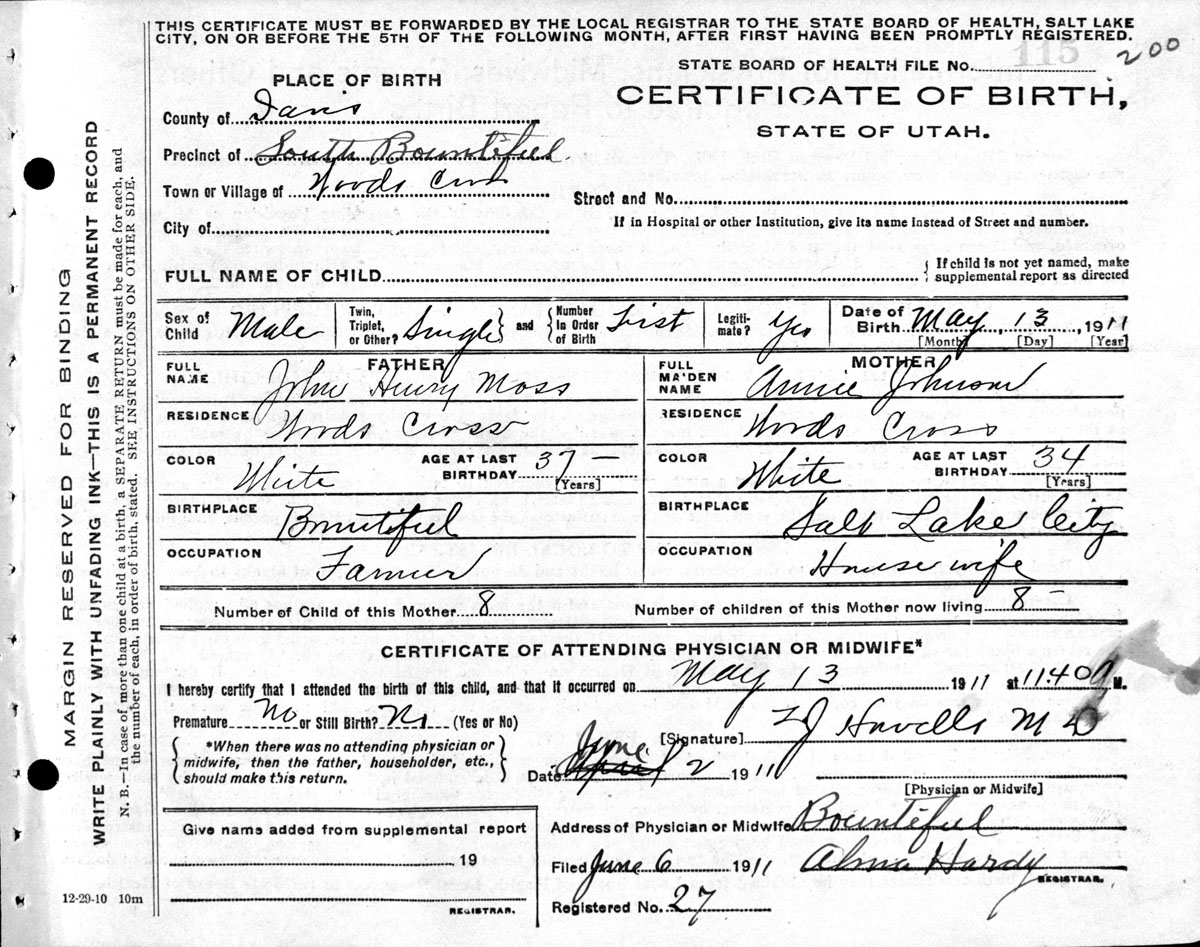 THIS CERTIFICATE MUST BE FORWARDED BY THE LOCAL REGISTRAR TO THE STATE BOARD OF HEALTH, SALT LAKE
CITY, ON OR BEFORE THE 5TH OF THE FOLLOWING MONTH, AFTER FIRST HAVING BEEN PROMPTLY REGISTERED.
200
115
STATE BOARD OF HEALTH FILE No.
PLACE OF BIRTH
CERTIFICATE OF BIRTH,
STATE OF UTAH.
County of Davis
Precinct of South Bountiful
Town or Village of Woods Cross
Street and No.
City of
If in Hospital or other Institution, give its name instead of Street and number.
FULL NAME OF CHILD
{ If child is not yet named, make supplemental report as directed
Sex of Child Male
Twin, Triplet, or Other? Single } and { Number In Order of Birth First
Legitimate? Yes
Date of Birth May, 13, 1911
[Month] [Day] [Year]
FATHER
FULL NAME John Henry Moss
RESIDENCE Woods Cross
COLOR White
AGE AT LAST BIRTHDAY 37
[Years]
BIRTHPLACE Bountiful
OCCUPATION Farmer
MOTHER
FULL MAIDEN NAME Annie Johnson
RESIDENCE Woods Cross
COLOR White
AGE AT LAST BIRTHDAY 34
[Years]
BIRTHPLACE Salt Lake City
OCCUPATION House wife
Number of Child of this Mother 8
Number of children of this Mother now living 8
CERTIFICATE OF ATTENDING PHYSICIAN OR MIDWIFE*
I hereby certify that I attended the birth of this child, and that it occurred on May 13 1911 at 11:40 a M.
Premature No or Still Birth? No (Yes or No)
*When there was no attending physician or
midwife, then the father, householder, etc.,
should make this return.
[Signature] M D
June
Date April 2 1911
[Physician or Midwife]
Give name added from supplemental report
19
REGISTRAR.
Address of Physician or Midwife Bountiful
Filed June 6 1911 Alma Hardy
REGISTRAR.
Registered No. 27
12-29-10 10m
MARGIN RESERVED FOR BINDING
WRITE PLAINLY WITH UNFADING INK—THIS IS A PERMANENT RECORD
N. B.—In case of more than one child at a birth, a SEPARATE RETURN must be made for each, and
the number of each, in order of birth, stated. SEE INSTRUCTIONS ON OTHER SIDE.